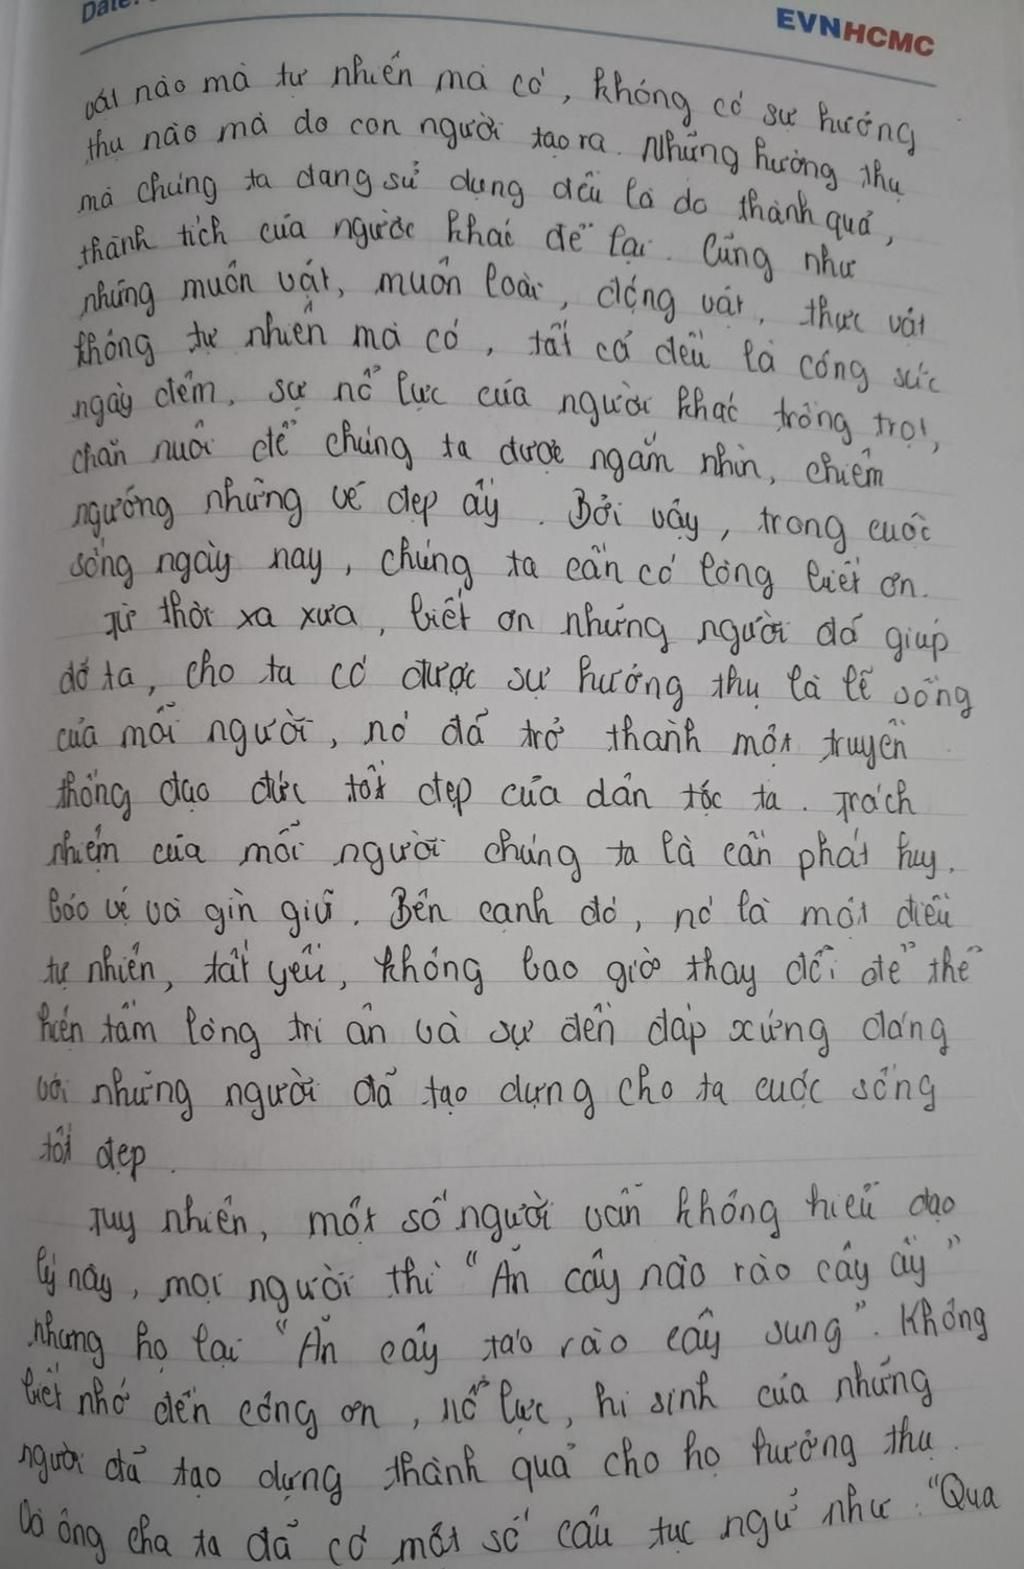 Date:
EVNHCMC
vật nào mà tự nhiên mà có, không có sự hưởng
thụ nào mà do con người tạo ra. Những hưởng thụ
mà chúng ta đang sử dụng đều là do thành quả,
thành tích của người khác để lại. Cũng như
những muôn vật, muôn loài, động vật, thực vật
không tự nhiên mà có, tất cả đều là công sức
ngày đêm, sự nổ lực của người khác trồng trọt,
chăn nuôi để chúng ta được ngắm nhìn, chiêm
ngưỡng những vẻ đẹp ấy. Bởi vậy, trong cuộc
sống ngày nay, chúng ta cần có lòng biết ơn.
Từ thời xa xưa, biết ơn những người đã giúp
đỡ ta, cho ta có được sự hưởng thụ là lẽ sống
của mỗi người, nó đã trở thành một truyền
thống đạo đức tốt đẹp của dân tộc ta. Trách
nhiệm của mỗi người chúng ta là cần phát huy,
bảo vệ và gìn giữ. Bên cạnh đó, nó là một điều
tự nhiên, tất yếu, không bao giờ thay đổi để thể
hiện tấm lòng tri ân và sự đền đáp xứng đáng
với những người đã tạo dựng cho ta cuộc sống
tốt đẹp.
Tuy nhiên, một số người vẫn không hiểu đạo
lý này, mọi người thì "Ăn cây nào rào cây ấy"
nhưng họ lại "Ăn cây táo rào cây sung". Không
biết nhớ đến công ơn, nổ lực, hi sinh của những
người đã tạo dựng thành quả cho họ hưởng thụ.
Và ông cha ta đã có một số câu tục ngữ như: "Qua